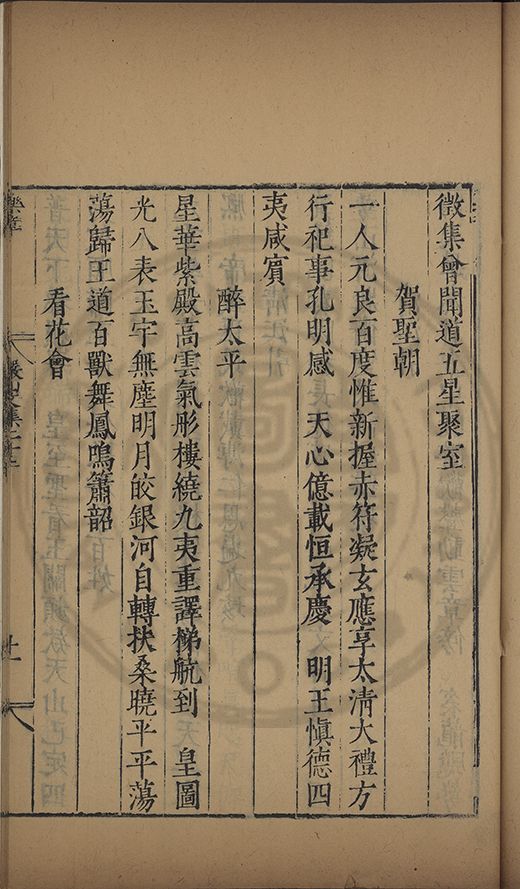 徵集會聞道五星聚室
賀聖朝
一人元良百度惟新握赤符凝玄應享太清大禮方
行祀事孔明感　天心億載恒承慶　明王愼德四
夷咸賓
醉太平
星華紫殿高雲氣彤樓繞九夷重譯梯航到　皇圖
光八表玉宇無塵明月皎銀河自轉扶桑曉平平蕩
蕩歸王道百獸舞鳳鳴簫韶
看花會